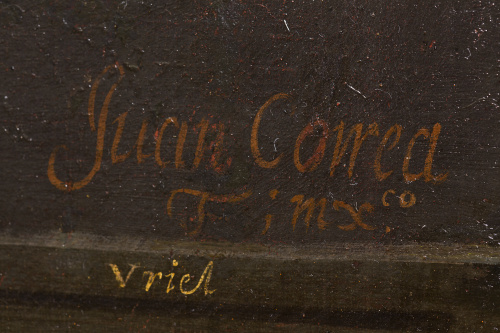 Juan Correa
F. i mxco.
Vriel